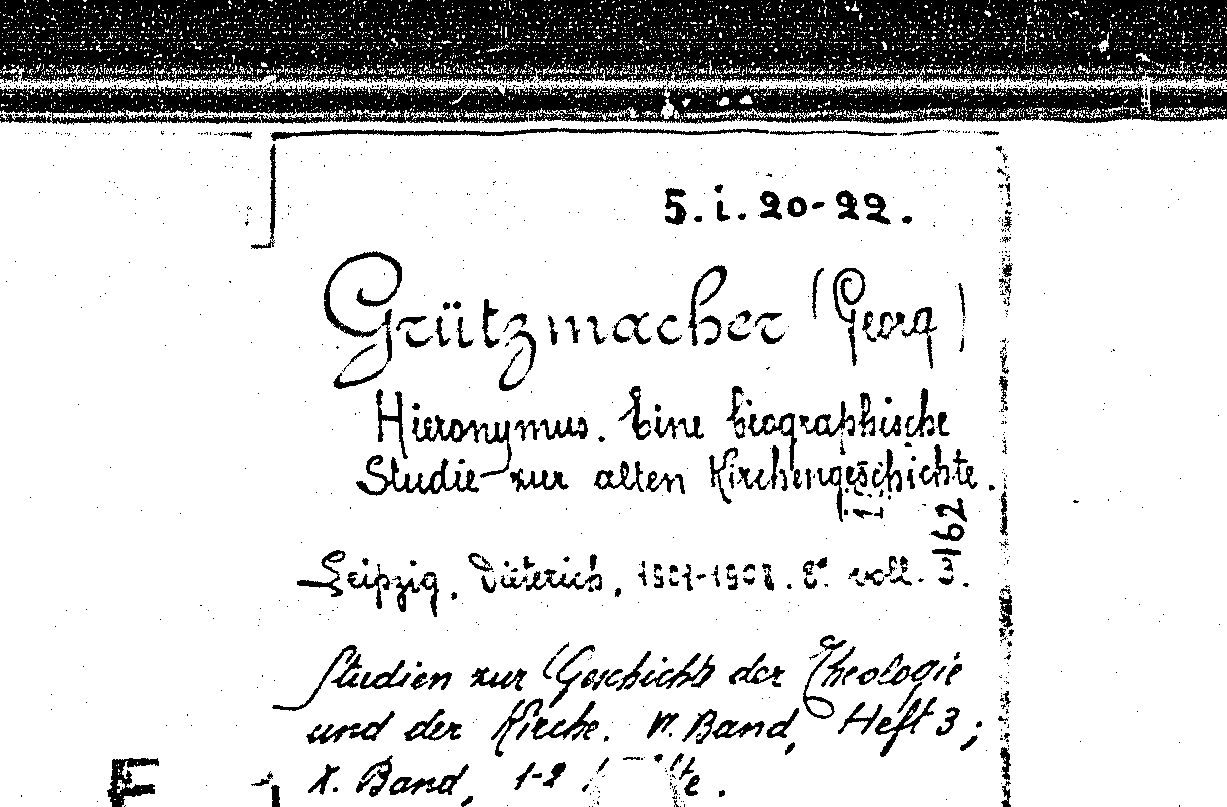 5.i.20-22.
Grützmacher (Georg)
Hieronymus. Eine biographische
Studie zur alten Kirchengeschichte.
162
Leipzig, Dieterich, 1901-1908. 8° voll. 3.
Studien zur Geschichte der Theologie
und der Kirche. VI. Band, Heft 3;
X. Band, 1-2
E